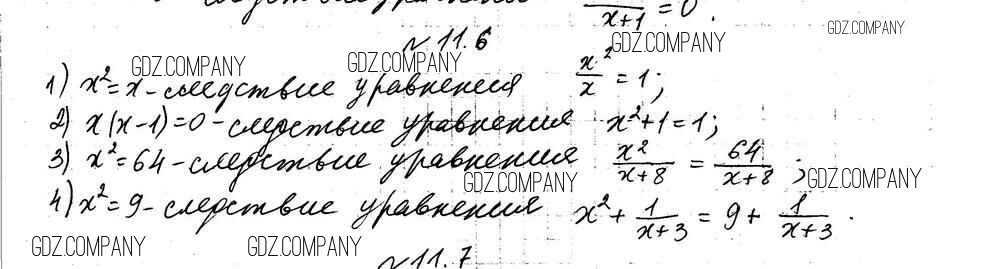 x+1 = 0.
№ 11.6
GDZ.COMPANY GDZ.COMPANY GDZ.COMPANY GDZ.COMPANY
1) x² = x - следствие уравнения x²/x = 1;
2) x(x-1)=0 - следствие уравнения x²+1=1;
3) x²=64 - следствие уравнения x²/(x+8) = 64/(x+8);
GDZ.COMPANY GDZ.COMPANY
4) x²=9 - следствие уравнения x² + 1/(x+3) = 9 + 1/(x+3).
GDZ.COMPANY GDZ.COMPANY
№ 11.7